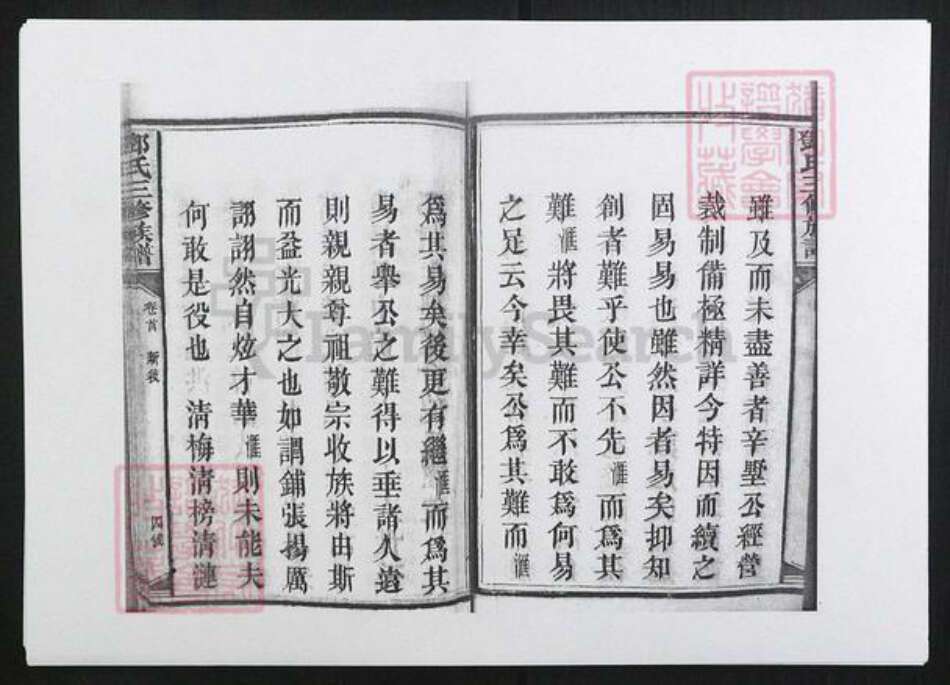 鄧氏三修族譜
雖及而未盡善者辛墅公經營
裁制備極精詳今特因而續之
固易易也雖然因者易矣抑知
創者難乎使公不先滙而為其
難滙將畏其難而不敢為何易
之足云今幸矣公為其難而滙
為其易矣後更有繼滙而為其
易者舉公之難得以垂諸久遠
則親親尊祖敬宗收族將由斯
而益光大之也如謂鋪張揚厲
詡詡然自炫才華滙則未能夫
何敢是役也清梅清榜清漣
鄧氏三修族譜
卷首
四號
FamilySearch